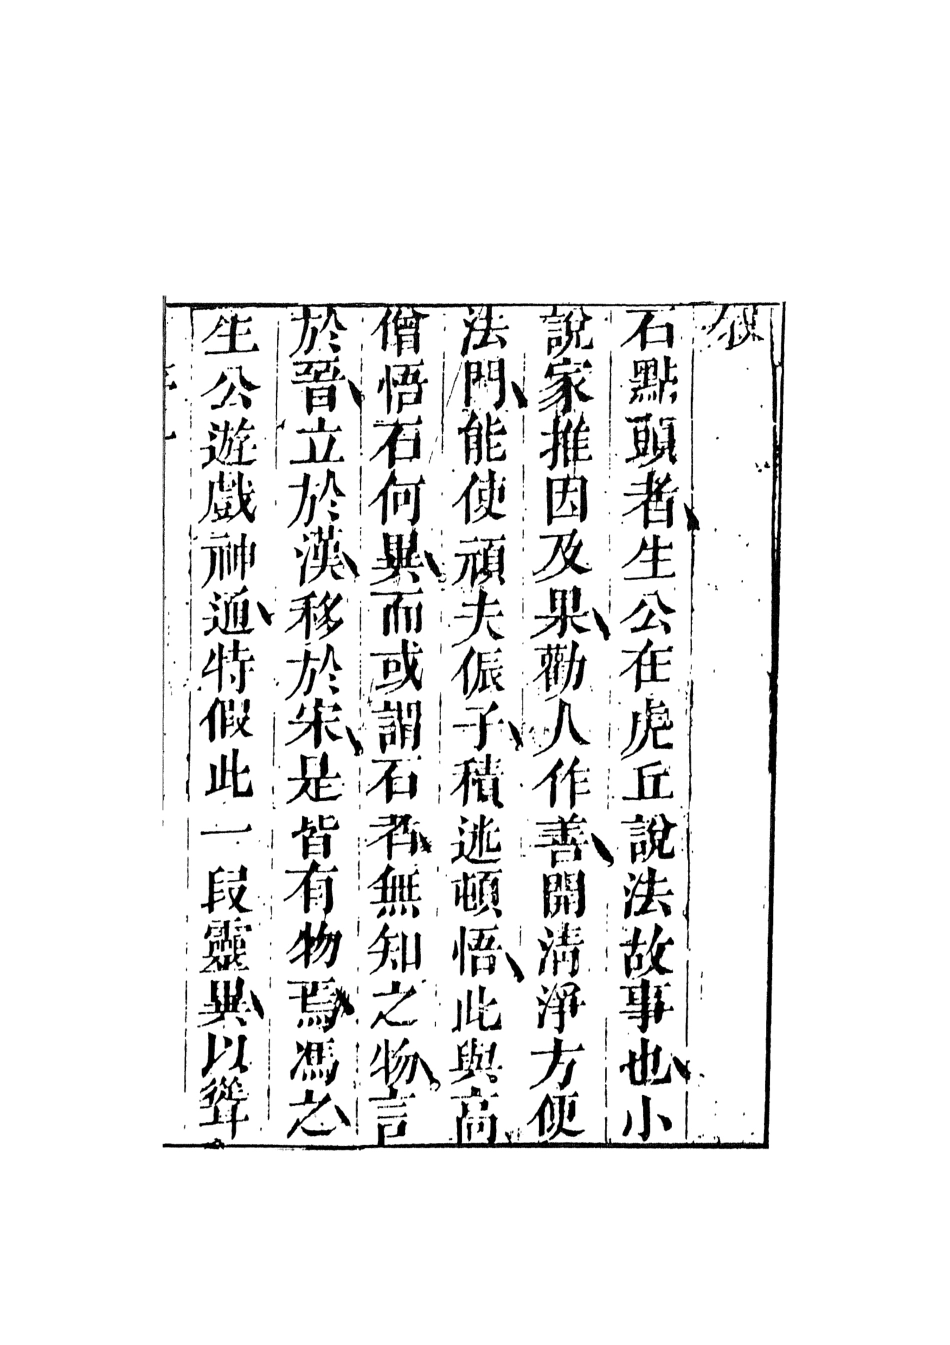 叙
石點頭者生公在虎丘說法故事也小
說家推因及果勸人作善開清淨方便
法門能使頑夫侲子積迷頓悟此與高
僧悟石何異而或謂石者無知之物言
於晉立於漢移於宋是皆有物焉馮之
生公遊戲神通特假此一段靈異以聳